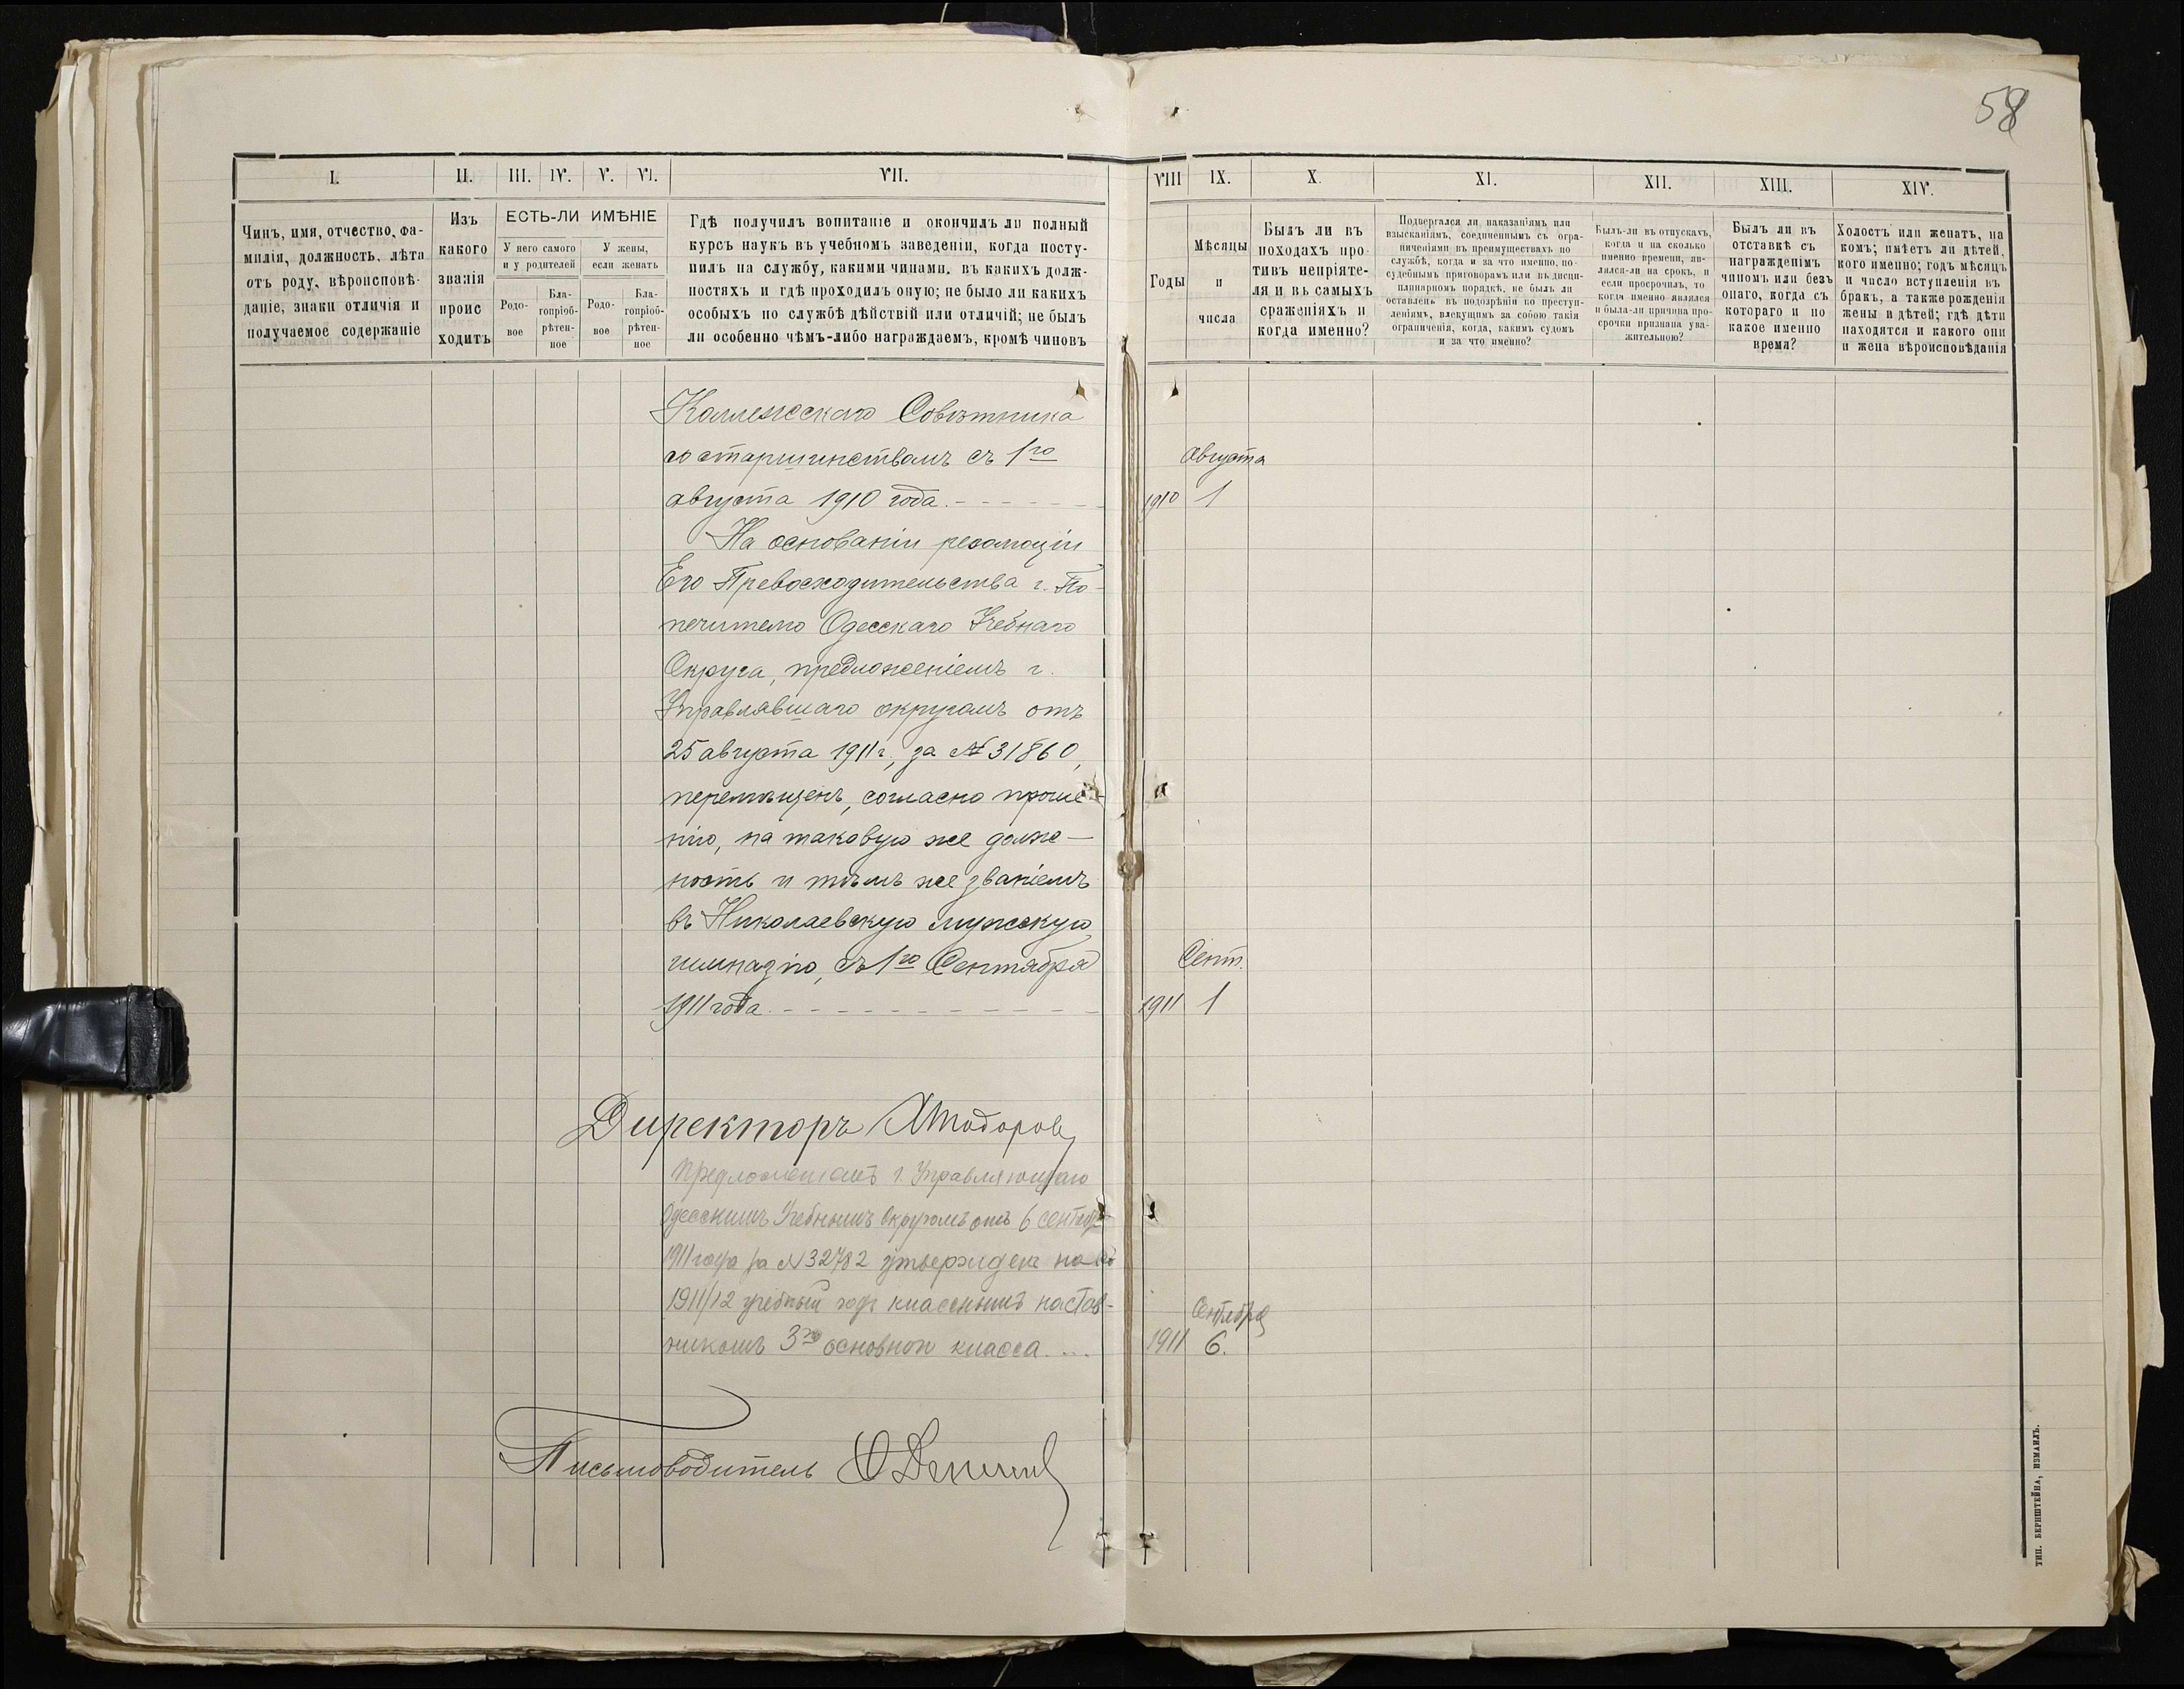 58
I.
II.
III.
IV.
V.
VI.
VII.
VIII
IX.
X.
XI.
XII.
XIII.
XIV.
Чинъ, имя, отчество, фа-
милія, должность, лѣта
отъ роду, вѣроисповѣ-
даніе, знаки отличія и
получаемое содержаніе
Изъ
какого
званія
проис
ходитъ
ЕСТЬ-ЛИ ИМѢНІЕ
У него самого
и у родителей
У жены,
если женатъ
Родо-
вое
Бла-
гопріоб-
рѣтен-
ное
Родо-
вое
Бла-
гопріоб-
рѣтен-
ное
Гдѣ получилъ вопитаніе и окончилъ ли полный
курсъ наукъ въ учебномъ заведеніи, когда посту-
пилъ на службу, какими чинами, въ какихъ долж-
ностяхъ и гдѣ проходилъ оную; не было ли какихъ
особыхъ по службѣ дѣйствій или отличій; не былъ
ли особенно чѣмъ-либо награждаемъ, кромѣ чиновъ
Годы
Мѣсяцы
и
числа
Былъ ли въ
походахъ про-
тивъ непріяте-
ля и въ самыхъ
сраженіяхъ и
когда именно?
Подвергался ли наказаніямъ или
взысканіямъ, соединеннымъ съ огра-
ниченіями въ преимуществахъ по
службѣ, когда и за что именно, по
судебнымъ приговорамъ или въ дисци-
плинарномъ порядкѣ, не былъ ли
оставленъ въ подозрѣніи по преступ-
леніямъ, влекущимъ за собою такія
ограниченія, когда, какимъ судомъ
и за что именно?
Былъ-ли въ отпускахъ,
когда и на сколько
именно времени, яв-
лялся-ли на срокъ, и
если просрочилъ, то
когда именно явился
и была-ли причина про-
срочки признана ува-
жительною?
Былъ ли въ
отставкѣ съ
награжденімъ
чиномъ или безъ
онаго, когда съ
котораго и по
какое именно
время?
Холостъ или женатъ, на
комъ; имѣетъ ли дѣтей,
кого именно; годъ мѣсяцъ
и число вступленія въ
бракъ, а также рожденія
жены и дѣтей; гдѣ дѣти
находятся и какого они
и жена вѣроисповѣданія
Коллежскаго Совѣтника
со старшинствомъ съ 1го
августа 1910 года.
Августа
1910 1
На основаніи резолюціи
Его Превосходительства г. По-
печителю Одесскаго Учебнаго
Округа, предложеніемъ г.
Управлявшаго округомъ отъ
25 августа 1911 г, за № 31860,
перемѣщенъ, согласно проше-
нію, на таковую же долж-
ность и тѣмъ же званіемъ
въ Николаевскую мужскую
гимназію, съ 1го Сентября
1911 года.
Сент.
1911 1
Директоръ
Предложеніемъ г. Управляющаго
Одесскимъ Учебнымъ Округомъ отъ 6 сентября
1911 года за № 32782 утвержденъ на
1911/12 учебный годъ класснымъ настав-
никомъ 3го основного класса....
Сентября
1911 6.
Письмоводитель
ТИП. БЕРНШТЕЙНА, ИЗМАИЛЪ.